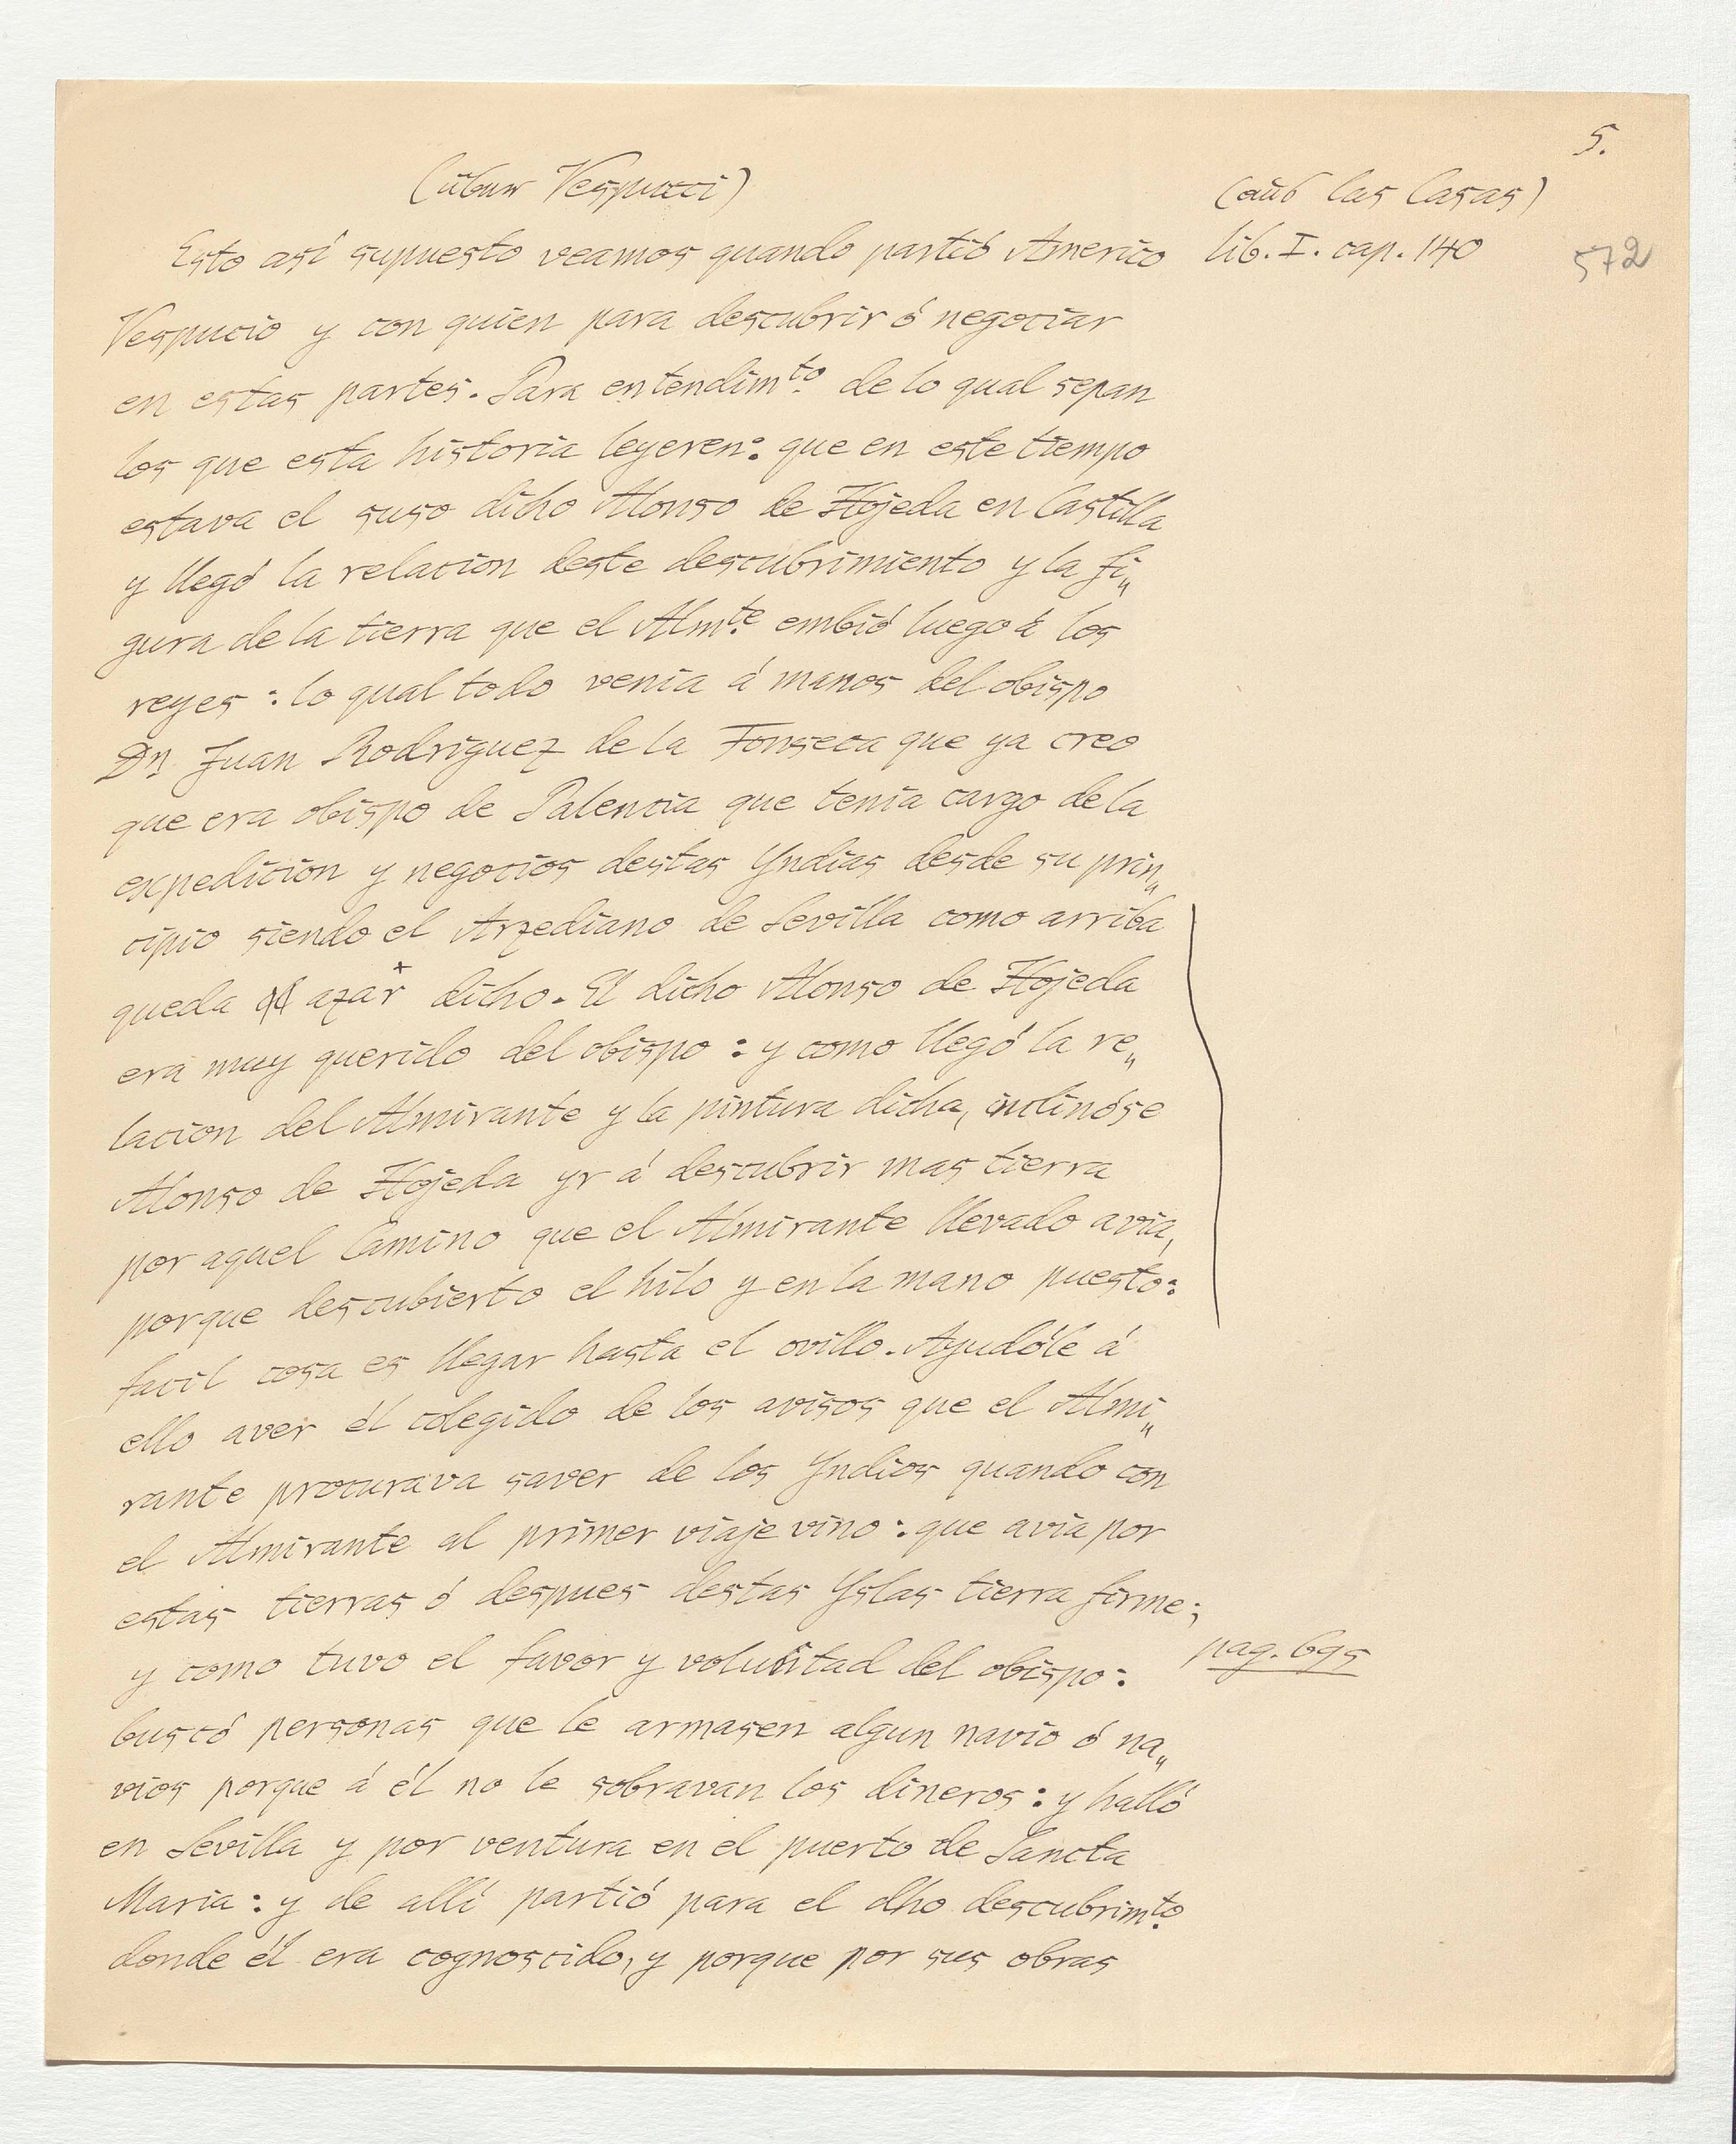 5.
(über Vespucci)
(aus las Casas)
Esto así supuesto veamos quando partió Americo
lib. I. cap. 140
572
Vespucio y con quien para descubrir ó negociar
en estas partes. Para entendimto. de lo qual sepan
los que esta historia leyeren: que en este tiempo
estava el suso dicho Alonso de Hojeda en Castilla
y llegó la relacion deste descubrimiento y la fi„
gura de la tierra que el Almte. embió luego á los
reyes: lo qual todo venia á manos del obispo
Dn. Juan Rodriguez de la Fonseca que ya creo
que era obispo de Palencia que tenia cargo de la
expedicion y negocios destas Yndias desde su prin„
cipio siendo el Arzediano de Sevilla como arriba
queda azar dicho. El dicho Alonso de Hojeda
era muy querido del obispo: y como llegó la re„
lacion del Almirante y la pintura dicha, inclinóse
Alonso de Hojeda yr á descubrir mas tierra
por aquel Camino que el Almirante llevado avia,
porque descubierto el hilo y en la mano puesto:
facil cosa es llegar hasta el ovillo. Ayudóle á
ello aver él colegido de los avisos que el Almi„
rante procurava saver de los Yndios quando con
el Almirante al primer viaje vino: que avia por
estas tierras ó despues destas Yslas tierra firme;
y como tuvo el favor y voluntad del obispo:
pag. 695
buscó personas que le armasen algun navio ó na„
vios porque á él no le sobravan los dineros: y halló
en Sevilla y por ventura en el puerto de Sancta
Maria: y de allí partió para el dho descubrimto.
donde él era cognoscido, y porque por sus obras